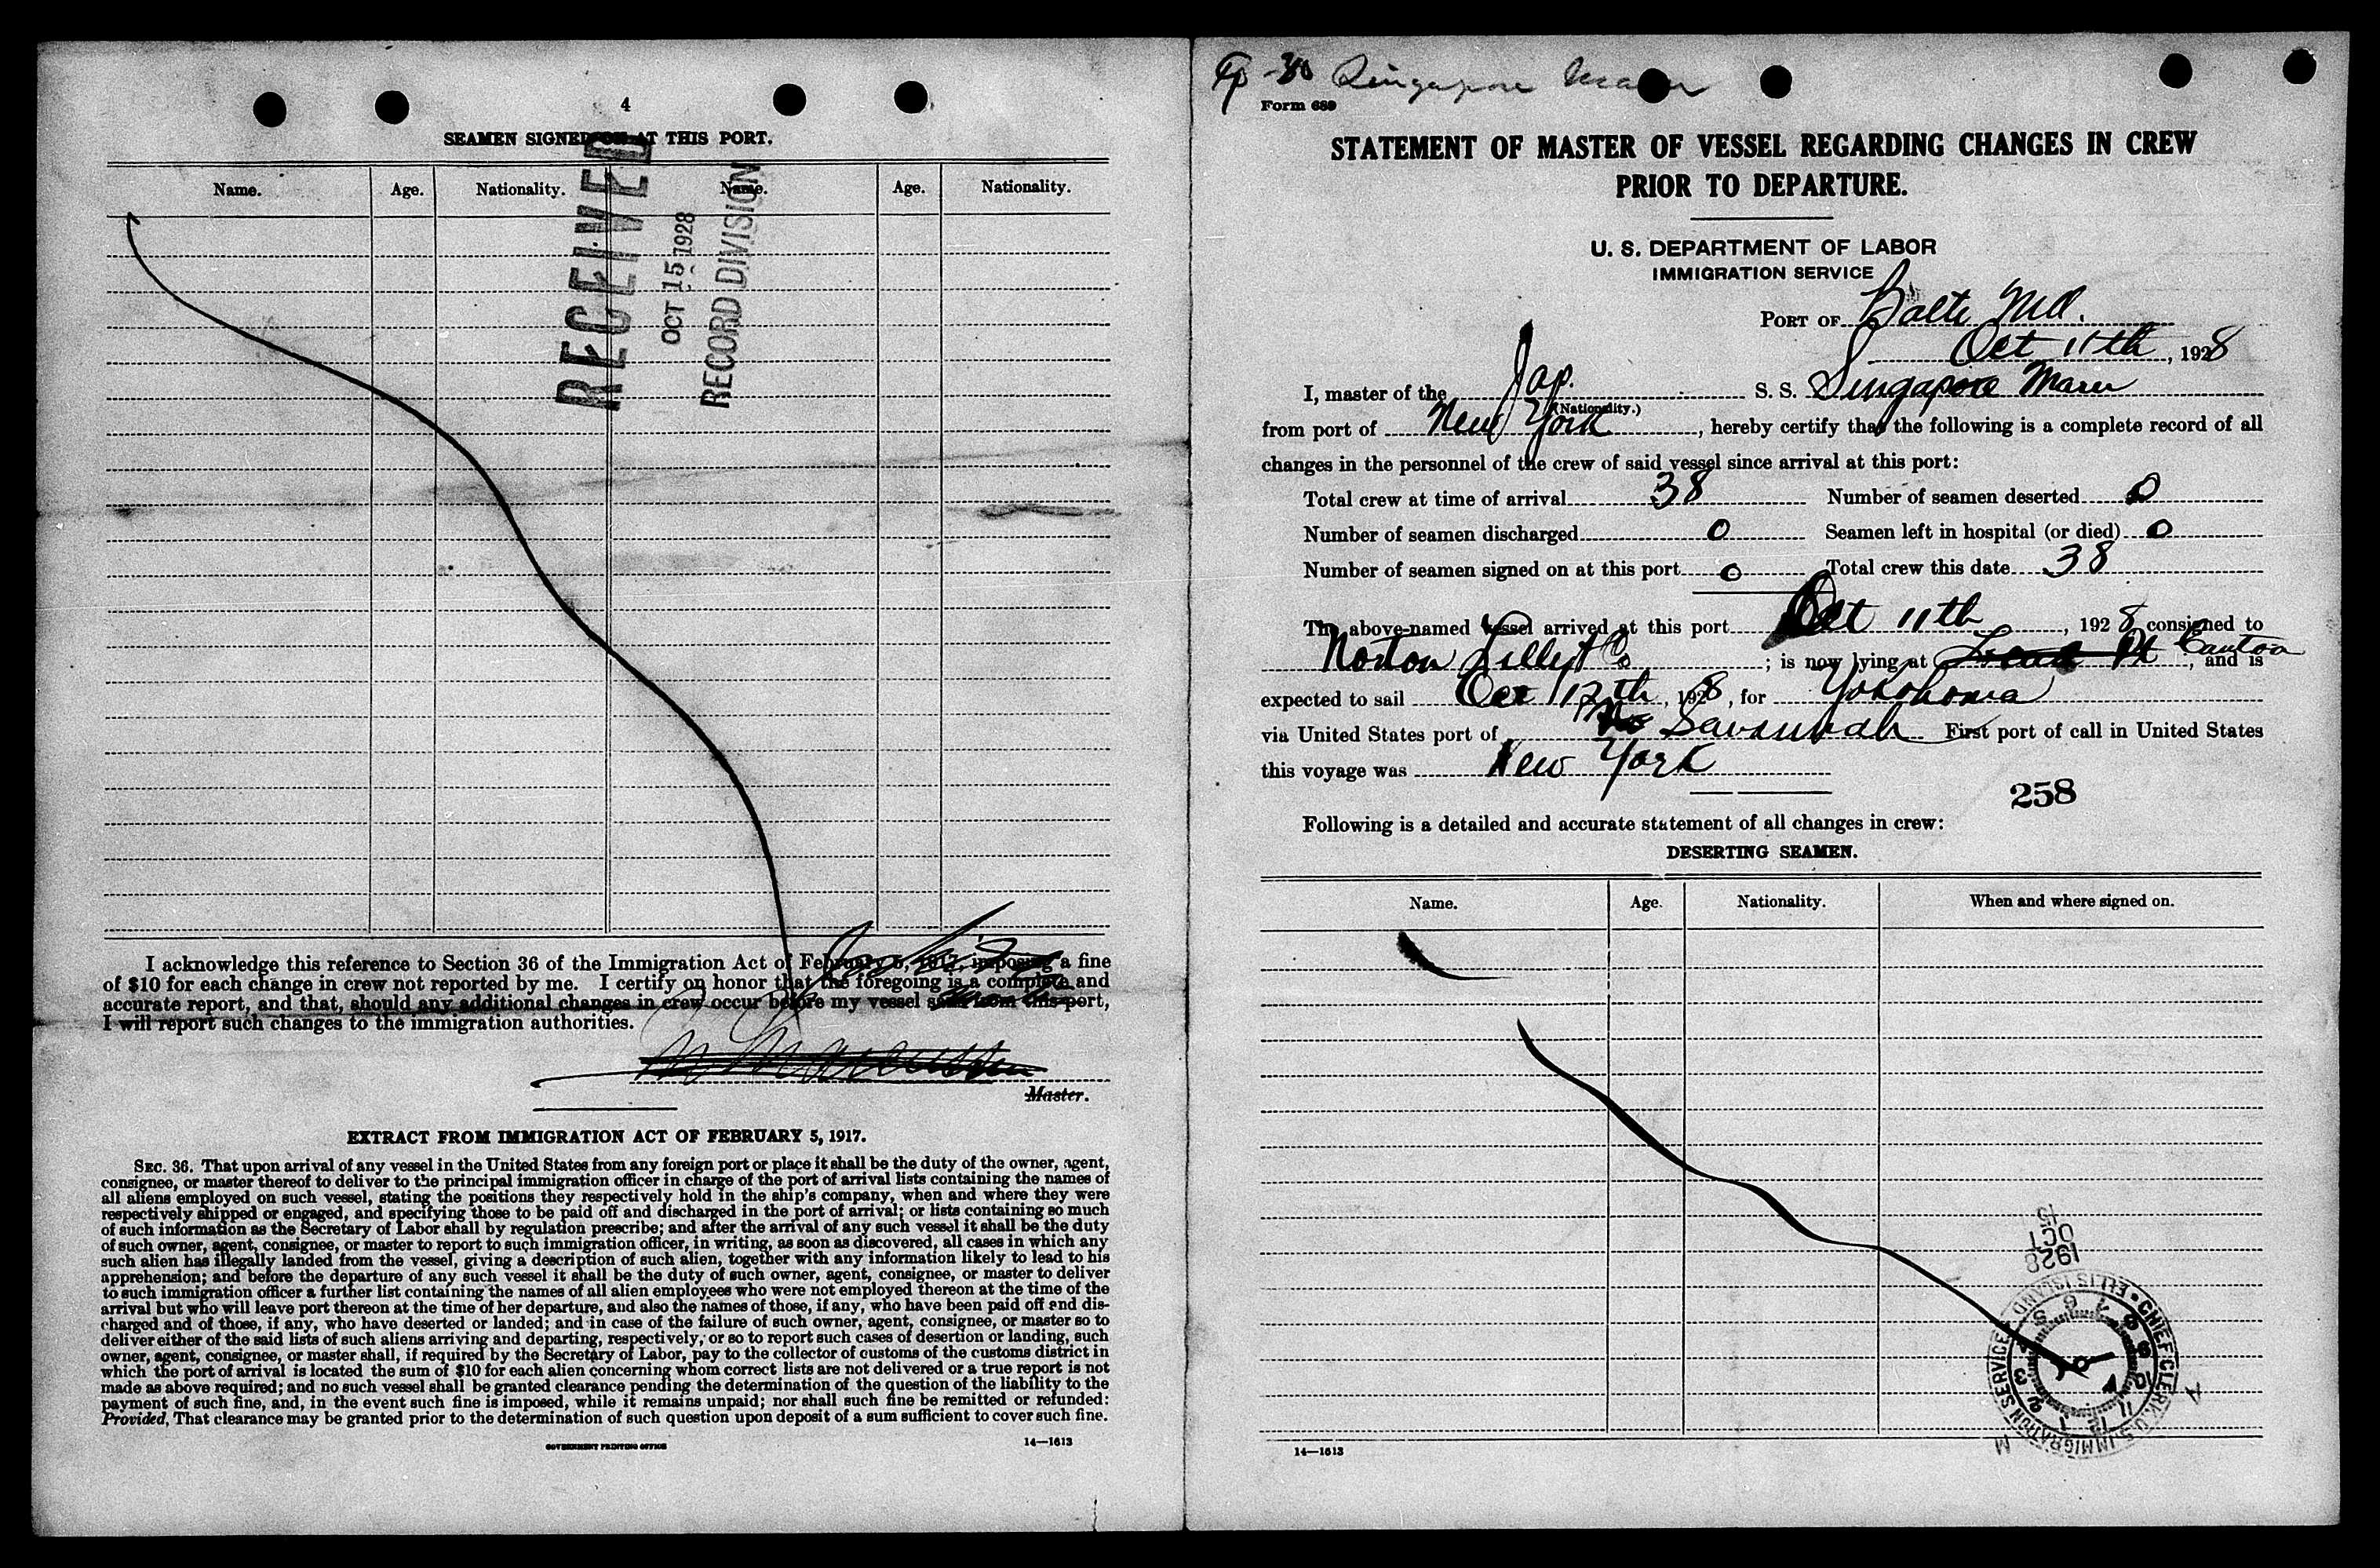 4
SEAMEN SIGNED ON AT THIS PORT.
Name. Age. Nationality. Name. Age. Nationality.
RECEIVED
OCT 15 1928
RECORD DIVISION
I acknowledge this reference to Section 36 of the Immigration Act of February 5, 1917, imposing a fine
of $10 for each change in crew not reported by me. I certify on honor that the foregoing is a complete and
accurate report, and that, should any additional changes in crew occur before my vessel sails from this port,
I will report such changes to the immigration authorities.
Master.
EXTRACT FROM IMMIGRATION ACT OF FEBRUARY 5, 1917.
SEC. 36. That upon arrival of any vessel in the United States from any foreign port or place it shall be the duty of the owner, agent,
consignee, or master thereof to deliver to the principal immigration officer in charge of the port of arrival lists containing the names of
all aliens employed on such vessel, stating the positions they respectively hold in the ship's company, when and where they were
respectively shipped or engaged, and specifying those to be paid off and discharged in the port of arrival; or lists containing so much
of such information as the Secretary of Labor shall by regulation prescribe; and after the arrival of any such vessel it shall be the duty
of such owner, agent, consignee, or master to report to such immigration officer, in writing, as soon as discovered, all cases in which any
such alien has illegally landed from the vessel, giving a description of such alien, together with any information likely to lead to his
apprehension; and before the departure of any such vessel it shall be the duty of such owner, agent, consignee, or master to deliver
to such immigration officer a further list containing the names of all alien employees who were not employed thereon at the time of the
arrival but who will leave port thereon at the time of her departure, and also the names of those, if any, who have been paid off and dis-
charged and of those, if any, who have deserted or landed; and in case of the failure of such owner, agent, consignee, or master so to
deliver either of the said lists of such aliens arriving and departing, respectively, or so to report such cases of desertion or landing, such
owner, agent, consignee, or master shall, if required by the Secretary of Labor, pay to the collector of customs of the customs district in
which the port of arrival is located the sum of $10 for each alien concerning whom correct lists are not delivered or a true report is not
made as above required; and no such vessel shall be granted clearance pending the determination of the question of the liability to the
payment of such fine, and, in the event such fine is imposed, while it remains unpaid; nor shall such fine be remitted or refunded:
Provided, That clearance may be granted prior to the determination of such question upon deposit of a sum sufficient to cover such fine.
GOVERNMENT PRINTING OFFICE 14—1613
Singapore Maru
Form 689
STATEMENT OF MASTER OF VESSEL REGARDING CHANGES IN CREW
PRIOR TO DEPARTURE.
U. S. DEPARTMENT OF LABOR
IMMIGRATION SERVICE
PORT OF Balto Md.
Oct 11th, 1928
I, master of the Jap. S. S. Singapore Maru
(Nationality.)
from port of New York, hereby certify that the following is a complete record of all
changes in the personnel of the crew of said vessel since arrival at this port:
Total crew at time of arrival 38 Number of seamen deserted 0
Number of seamen discharged 0 Seamen left in hospital (or died) 0
Number of seamen signed on at this port 0 Total crew this date 38
The above-named vessel arrived at this port Oct 11th, 1928, consigned to
Norton Lilly & Co; is now lying at Canton, and is
expected to sail Oct 12th, 1928, for Yokohoma
via United States port of Savannah First port of call in United States
this voyage was New York
258
Following is a detailed and accurate statement of all changes in crew:
DESERTING SEAMEN.
Name. Age. Nationality. When and where signed on.
1928
OCT
15
CHIEF CLERK, U. S. IMMIGRATION SERVICE ELLIS ISLAND
14—1613